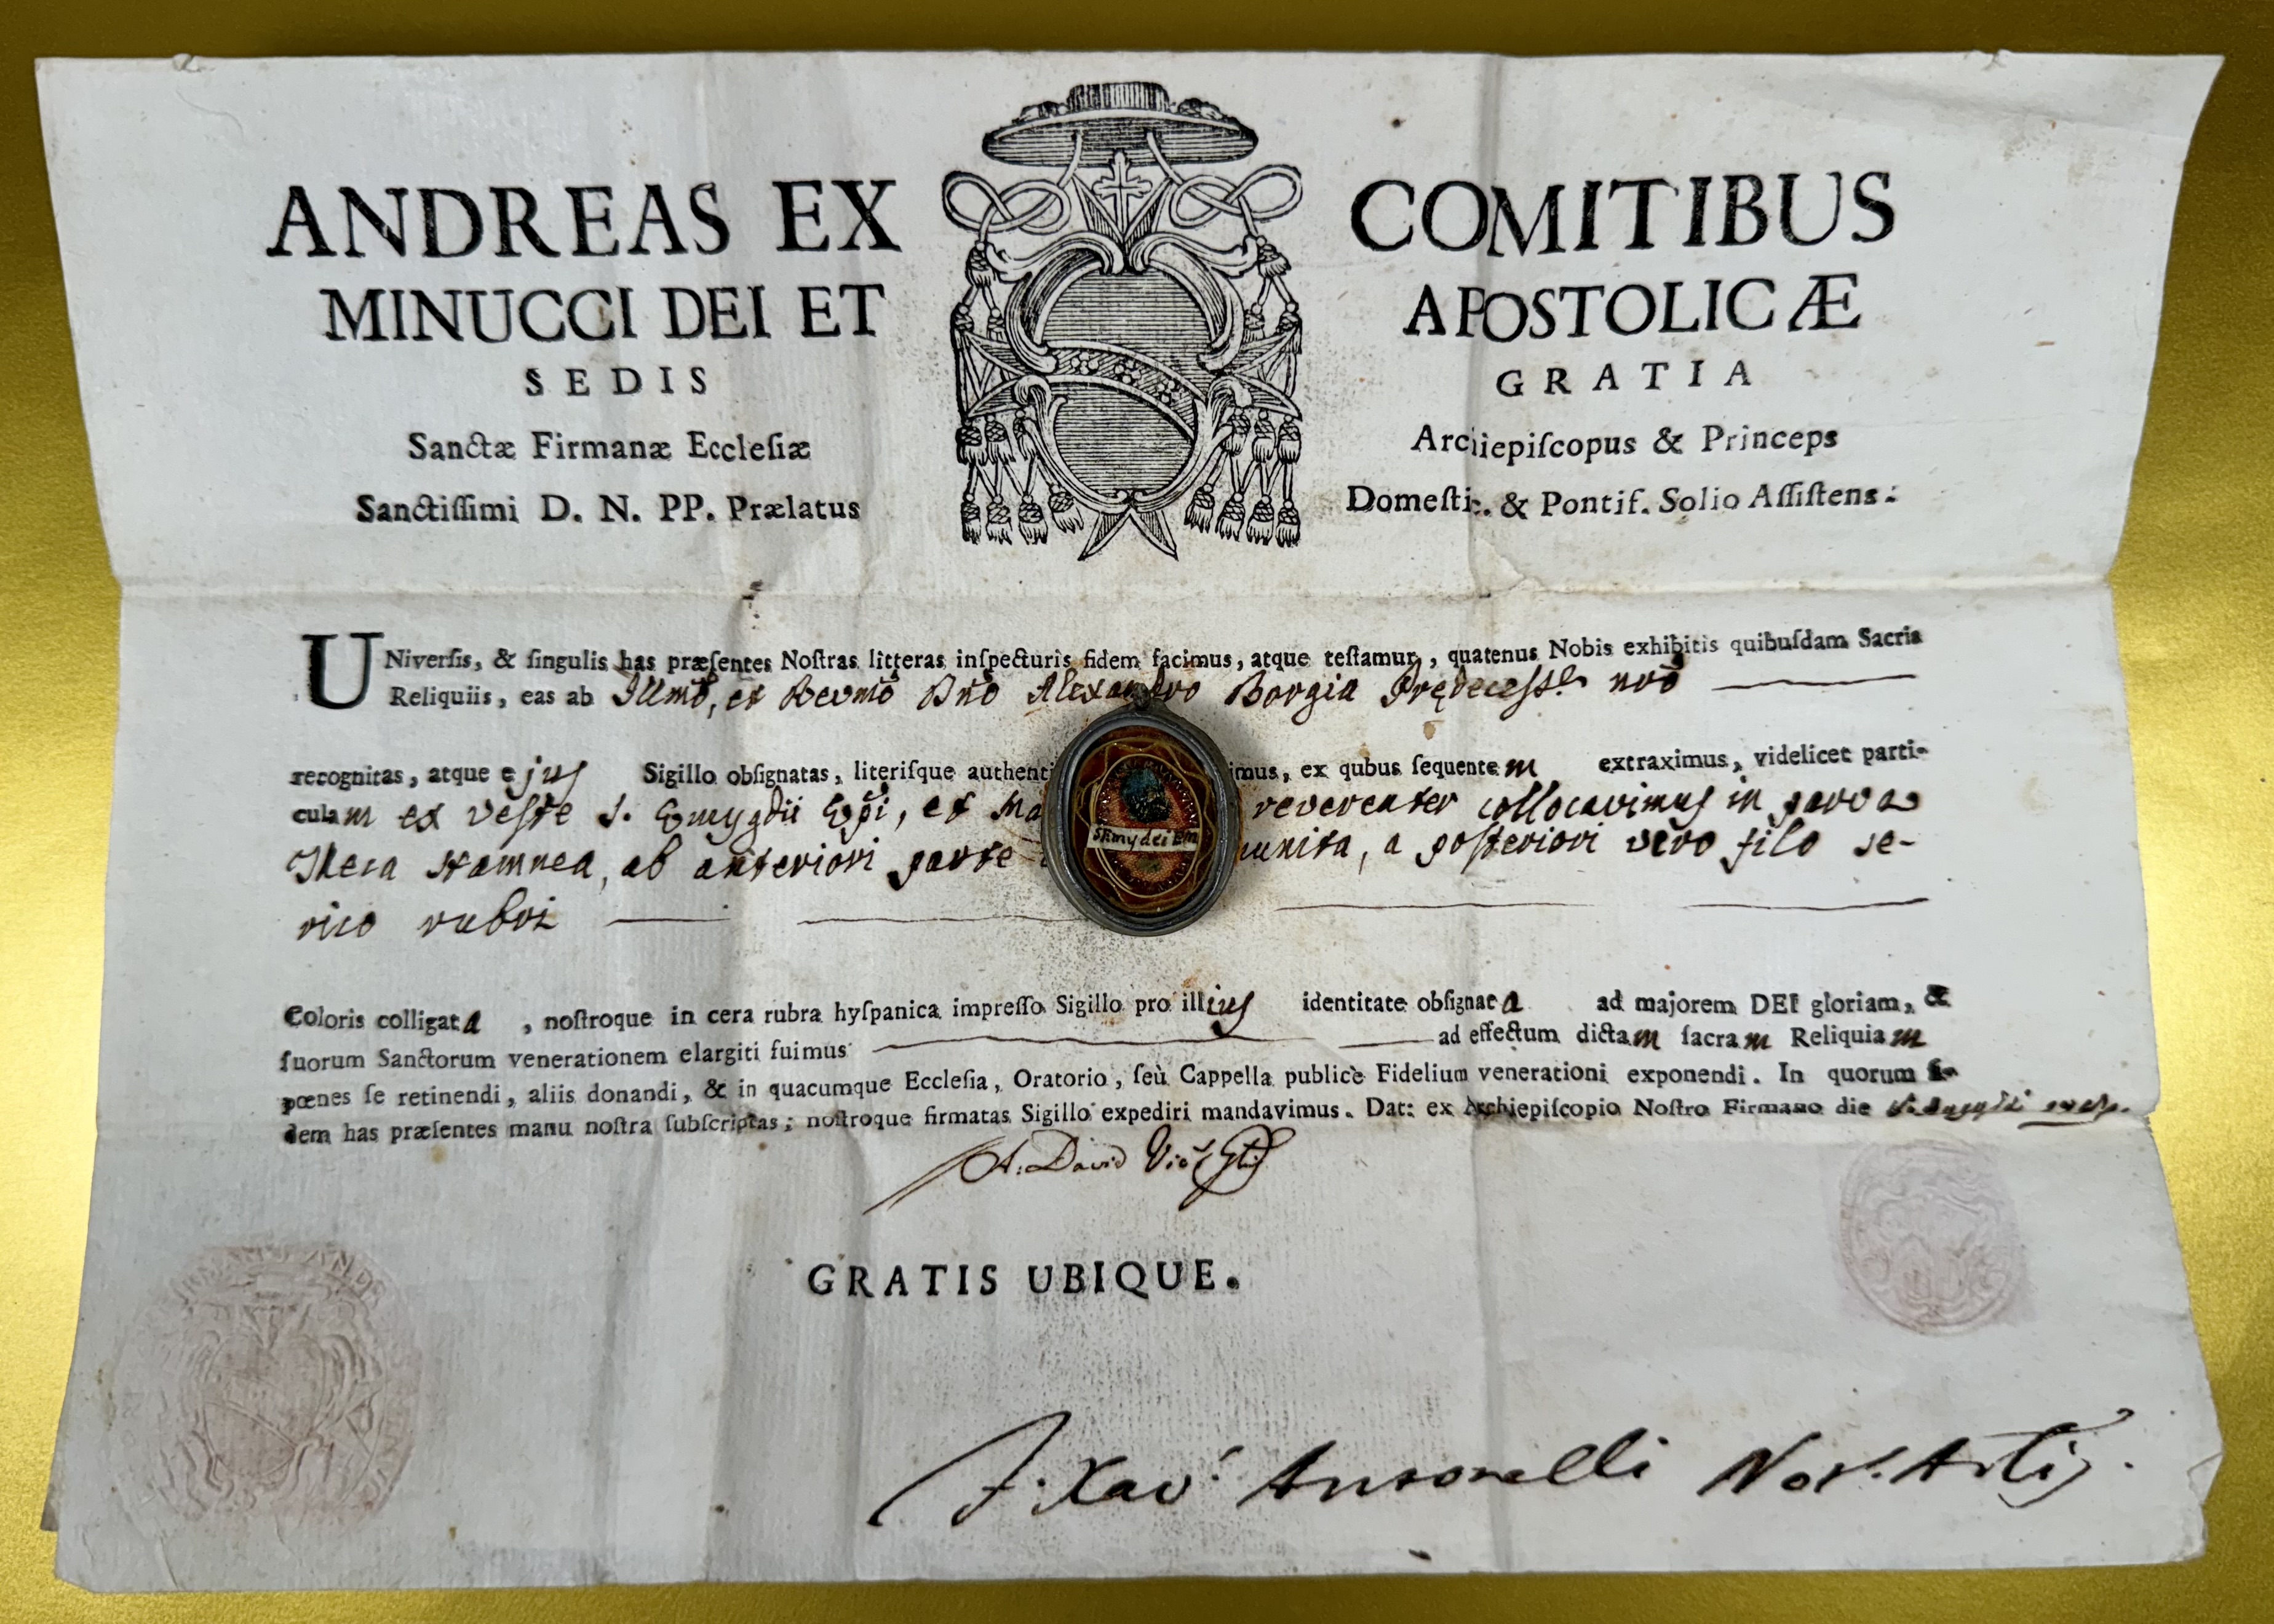 ANDREAS EX COMITIBUS
MINUCCI DEI ET APOSTOLICÆ
SEDIS GRATIA
Sanctæ Firmanæ Eccleſiæ Archiepiſcopus & Princeps
Sanctiſſimi D. N. PP. Prælatus Domeſtic. & Pontif. Solio Aſſiſtens.
UNiverſis, & ſingulis has præſentes Noſtras litteras inſpecturis fidem facimus, atque teſtamur, quatenus Nobis exhibitis quibuſdam Sacris
Reliquiis, eas ab Illmo, et Revmo Dno Alexandro Borgia Prędecessre nro
recognitas, atque ejus Sigillo obſignatas, literiſque authenti imus, ex qubus ſequentem extraximus, videlicet parti-
culam ex veste S. Emygdii Epi, et reverenter collocavimus in parva
Theca stamnea, ab anteriori parte munita, a posteriori vero filo se-
rico rubri
SEmydei EM
Coloris colligata, noſtroque in cera rubra hyſpanica impreſſo Sigillo pro illius identitate obſignata ad majorem DEI gloriam, &
ſuorum Sanctorum venerationem elargiti fuimus ad effectum dictam ſacram Reliquiam
pœnes ſe retinendi, aliis donandi, & in quacumque Eccleſia, Oratorio, ſeù Cappella publicè Fidelium venerationi exponendi. In quorum fi-
dem has præſentes manu noſtra ſubſcriptas; noſtroque firmatas Sigillo expediri mandavimus. Dat: ex Archiepiſcopio Noſtro Firmano die
A. David
GRATIS UBIQUE.
F. Xav. Antonelli